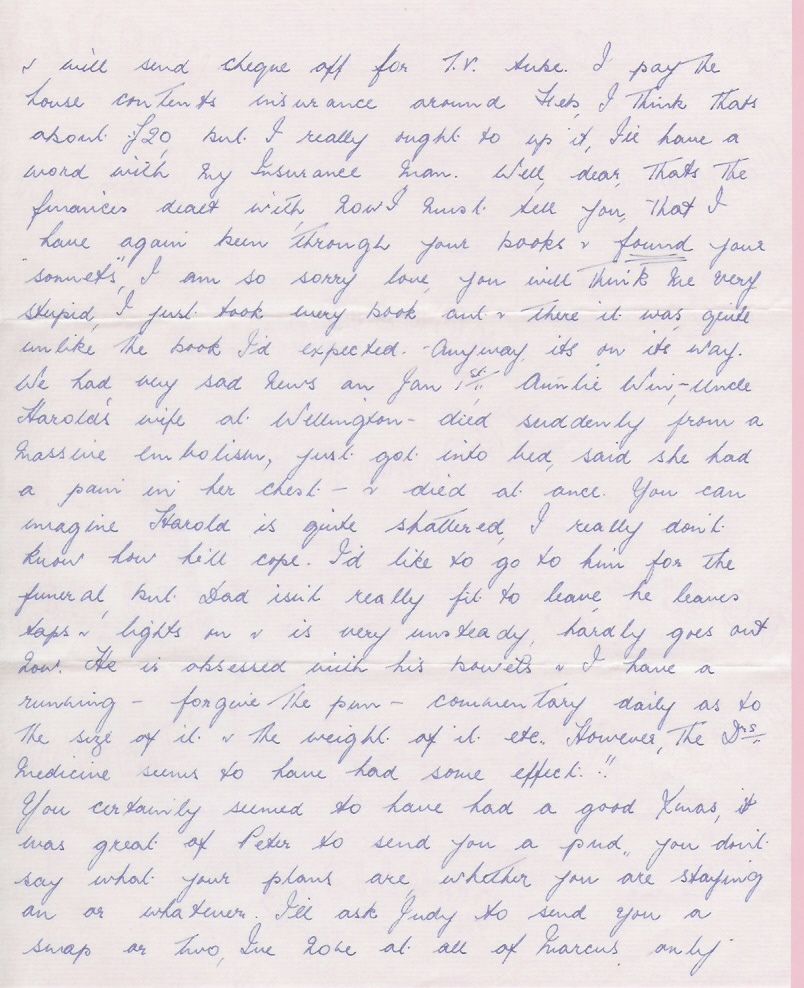 & will send cheque off for T.V. tube. I pay the
house contents insurance around Feb, I think thats
about £20, but I really ought to up it, I'll have a
word with my Insurance Man. Well, dear, thats the
finances dealt with, now I must tell you, that I
have again been through your books & found your
"sonnets", I am so sorry love, you will think me very
stupid, I just took every book out & there it was, quite
unlike the book I'd expected. - Anyway, its on its way.
We had very sad news on Jan 1st. Auntie Win, - Uncle
Harold's wife at Wellington - died suddenly from a
massive embolism, just got into bed, said she had
a pain in her chest - & died at once. You can
imagine Harold is quite shattered, I really don't
know how he'll cope. I'd like to go to him for the
funeral, but Dad isn't really fit to leave, he leaves
taps & lights on & is very unsteady, hardly goes out
now. He is obsessed with his bowels & I have a
running - forgive the pun - commentary daily as to
the size of it & the weight of it etc. However, the Drs.
Medicine seems to have had some effect.!!
You certainly seemed to have had a good Xmas, it
was great of Peter to send you a pud,, you don't
say what your plans are, whether you are staying
on or whatever. I'll ask Judy to send you a
snap or two, I've none at all of Marcus, only